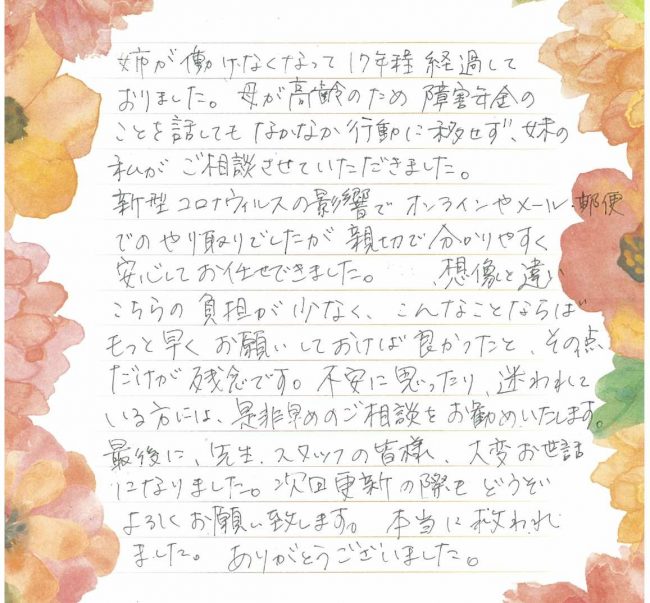 姉が働けなくなって17年程経過して
おりました。母が高齢のため障害年金の
ことを話してもなかなか行動に移せず、妹の
私がご相談させていただきました。
新型コロナウィルスの影響でオンラインやメール・郵便
でのやり取りでしたが親切で分かりやすく
安心してお任せできました。 想像と違い
こちらの負担が少なく、こんなことならば
もっと早くお願いしておけば良かったと、その点
だけが残念です。不安に思ったり、迷われて
いる方には、是非早めのご相談をお勧めいたします。
最後に、先生、スタッフの皆様、大変お世話
になりました。次回更新の際もどうぞ
よろしくお願い致します。本当に救われ
ました。ありがとうございました。